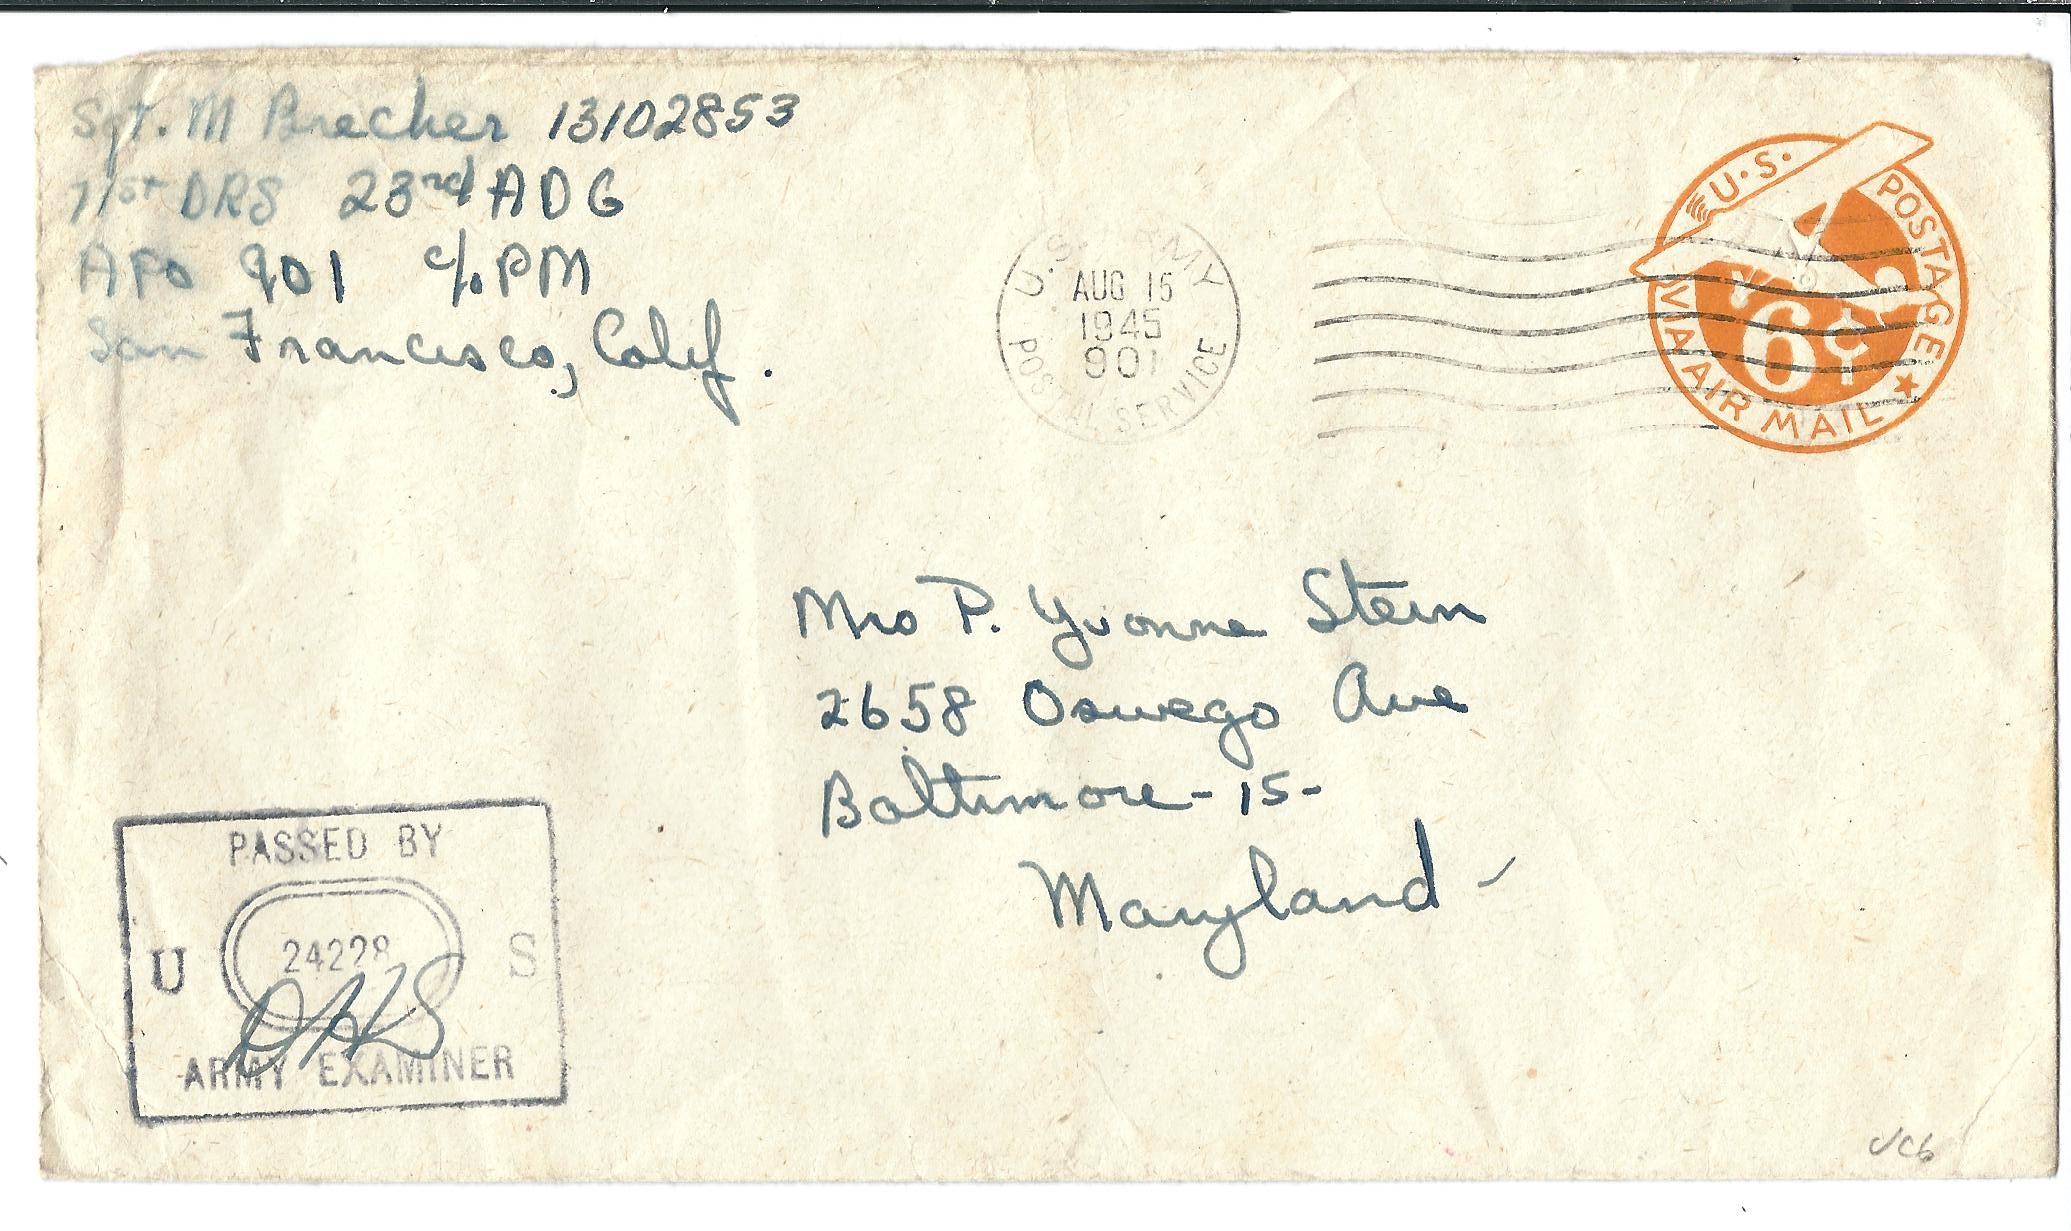 Sgt. M Brecher 13102853
71st DRS 23rd ADG
APO 901 c/o PM
San Francisco, Calif.
U.S. ARMY
AUG 15
1945
901
POSTAL SERVICE
U.S. POSTAGE
6¢
VIA AIR MAIL
Mrs P. Yvonne Stein
2658 Oswego Ave
Baltimore - 15 -
Maryland -
PASSED BY
U 24228 S
ARMY EXAMINER